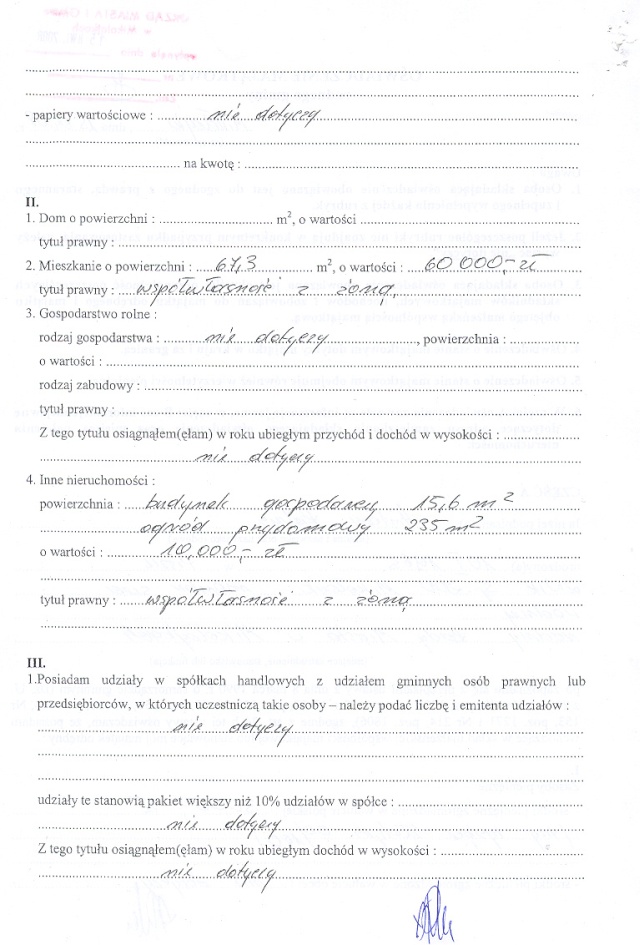 - papiery wartościowe : nie dotyczy
na kwotę :
II.
1. Dom o powierzchni : m², o wartości :
tytuł prawny :
2. Mieszkanie o powierzchni : 67,3 m², o wartości : 60 000,- zł
tytuł prawny : współwłasność z żoną
3. Gospodarstwo rolne :
rodzaj gospodarstwa : nie dotyczy, powierzchnia :
o wartości :
rodzaj zabudowy :
tytuł prawny :
Z tego tytułu osiągnąłem(ęłam) w roku ubiegłym przychód i dochód w wysokości :
nie dotyczy
4. Inne nieruchomości :
powierzchnia : budynek gospodarczy 15,6 m²
ogród przydomowy 235 m²
o wartości : 10,000,- zł
tytuł prawny : współwłasność z żoną
III.
1.Posiadam udziały w spółkach handlowych z udziałem gminnych osób prawnych lub
przedsiębiorców, w których uczestniczą takie osoby – należy podać liczbę i emitenta udziałów :
nie dotyczy
udziały te stanowią pakiet większy niż 10% udziałów w spółce :
nie dotyczy
Z tego tytułu osiągnąłem(ęłam) w roku ubiegłym dochód w wysokości :
nie dotyczy